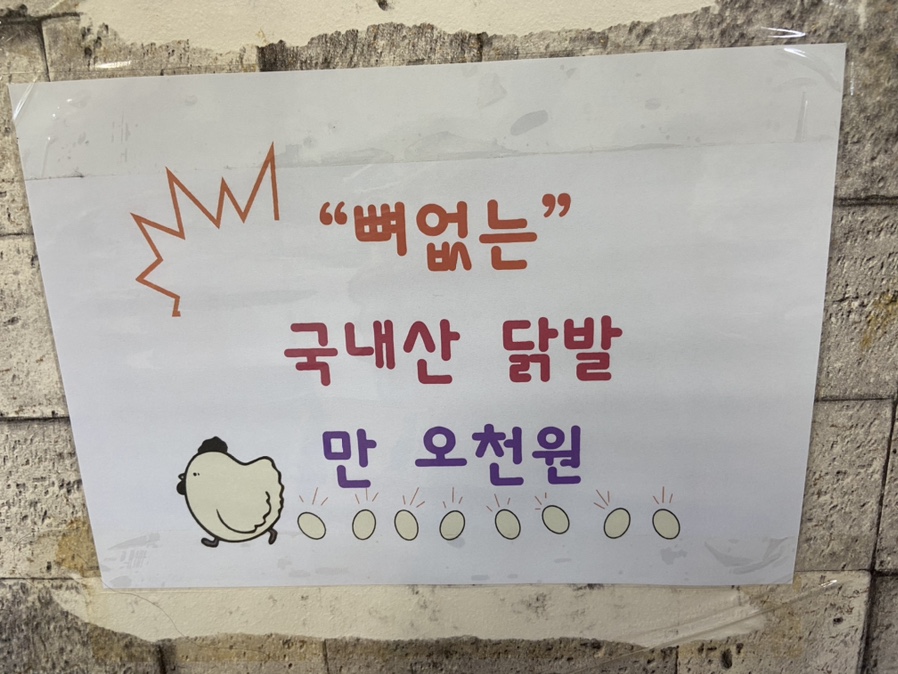 “뼈없는”
국내산 닭발
만 오천원